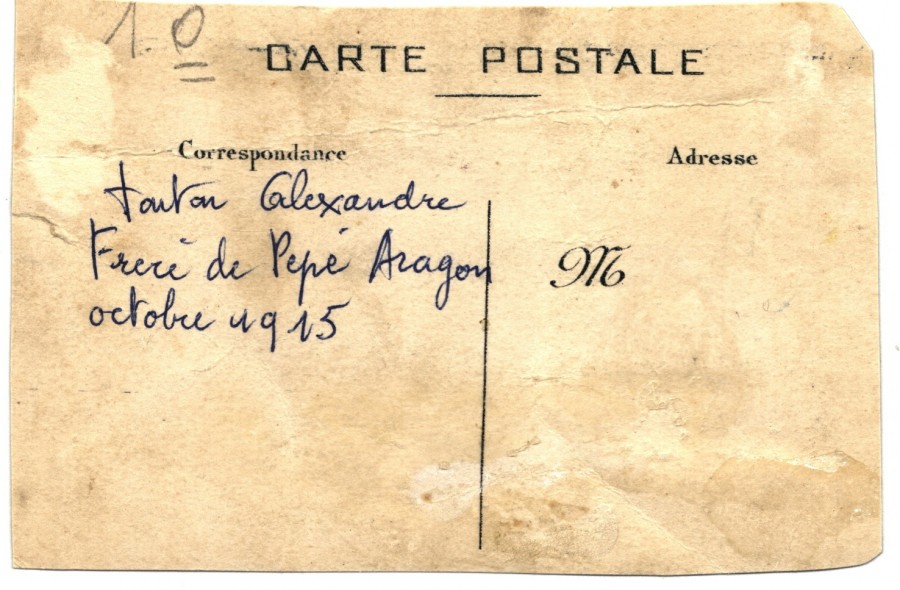 10
CARTE POSTALE
Correspondance
Adresse
tonton Alexandre
Frere de Pepé Aragon
octobre 1915
M